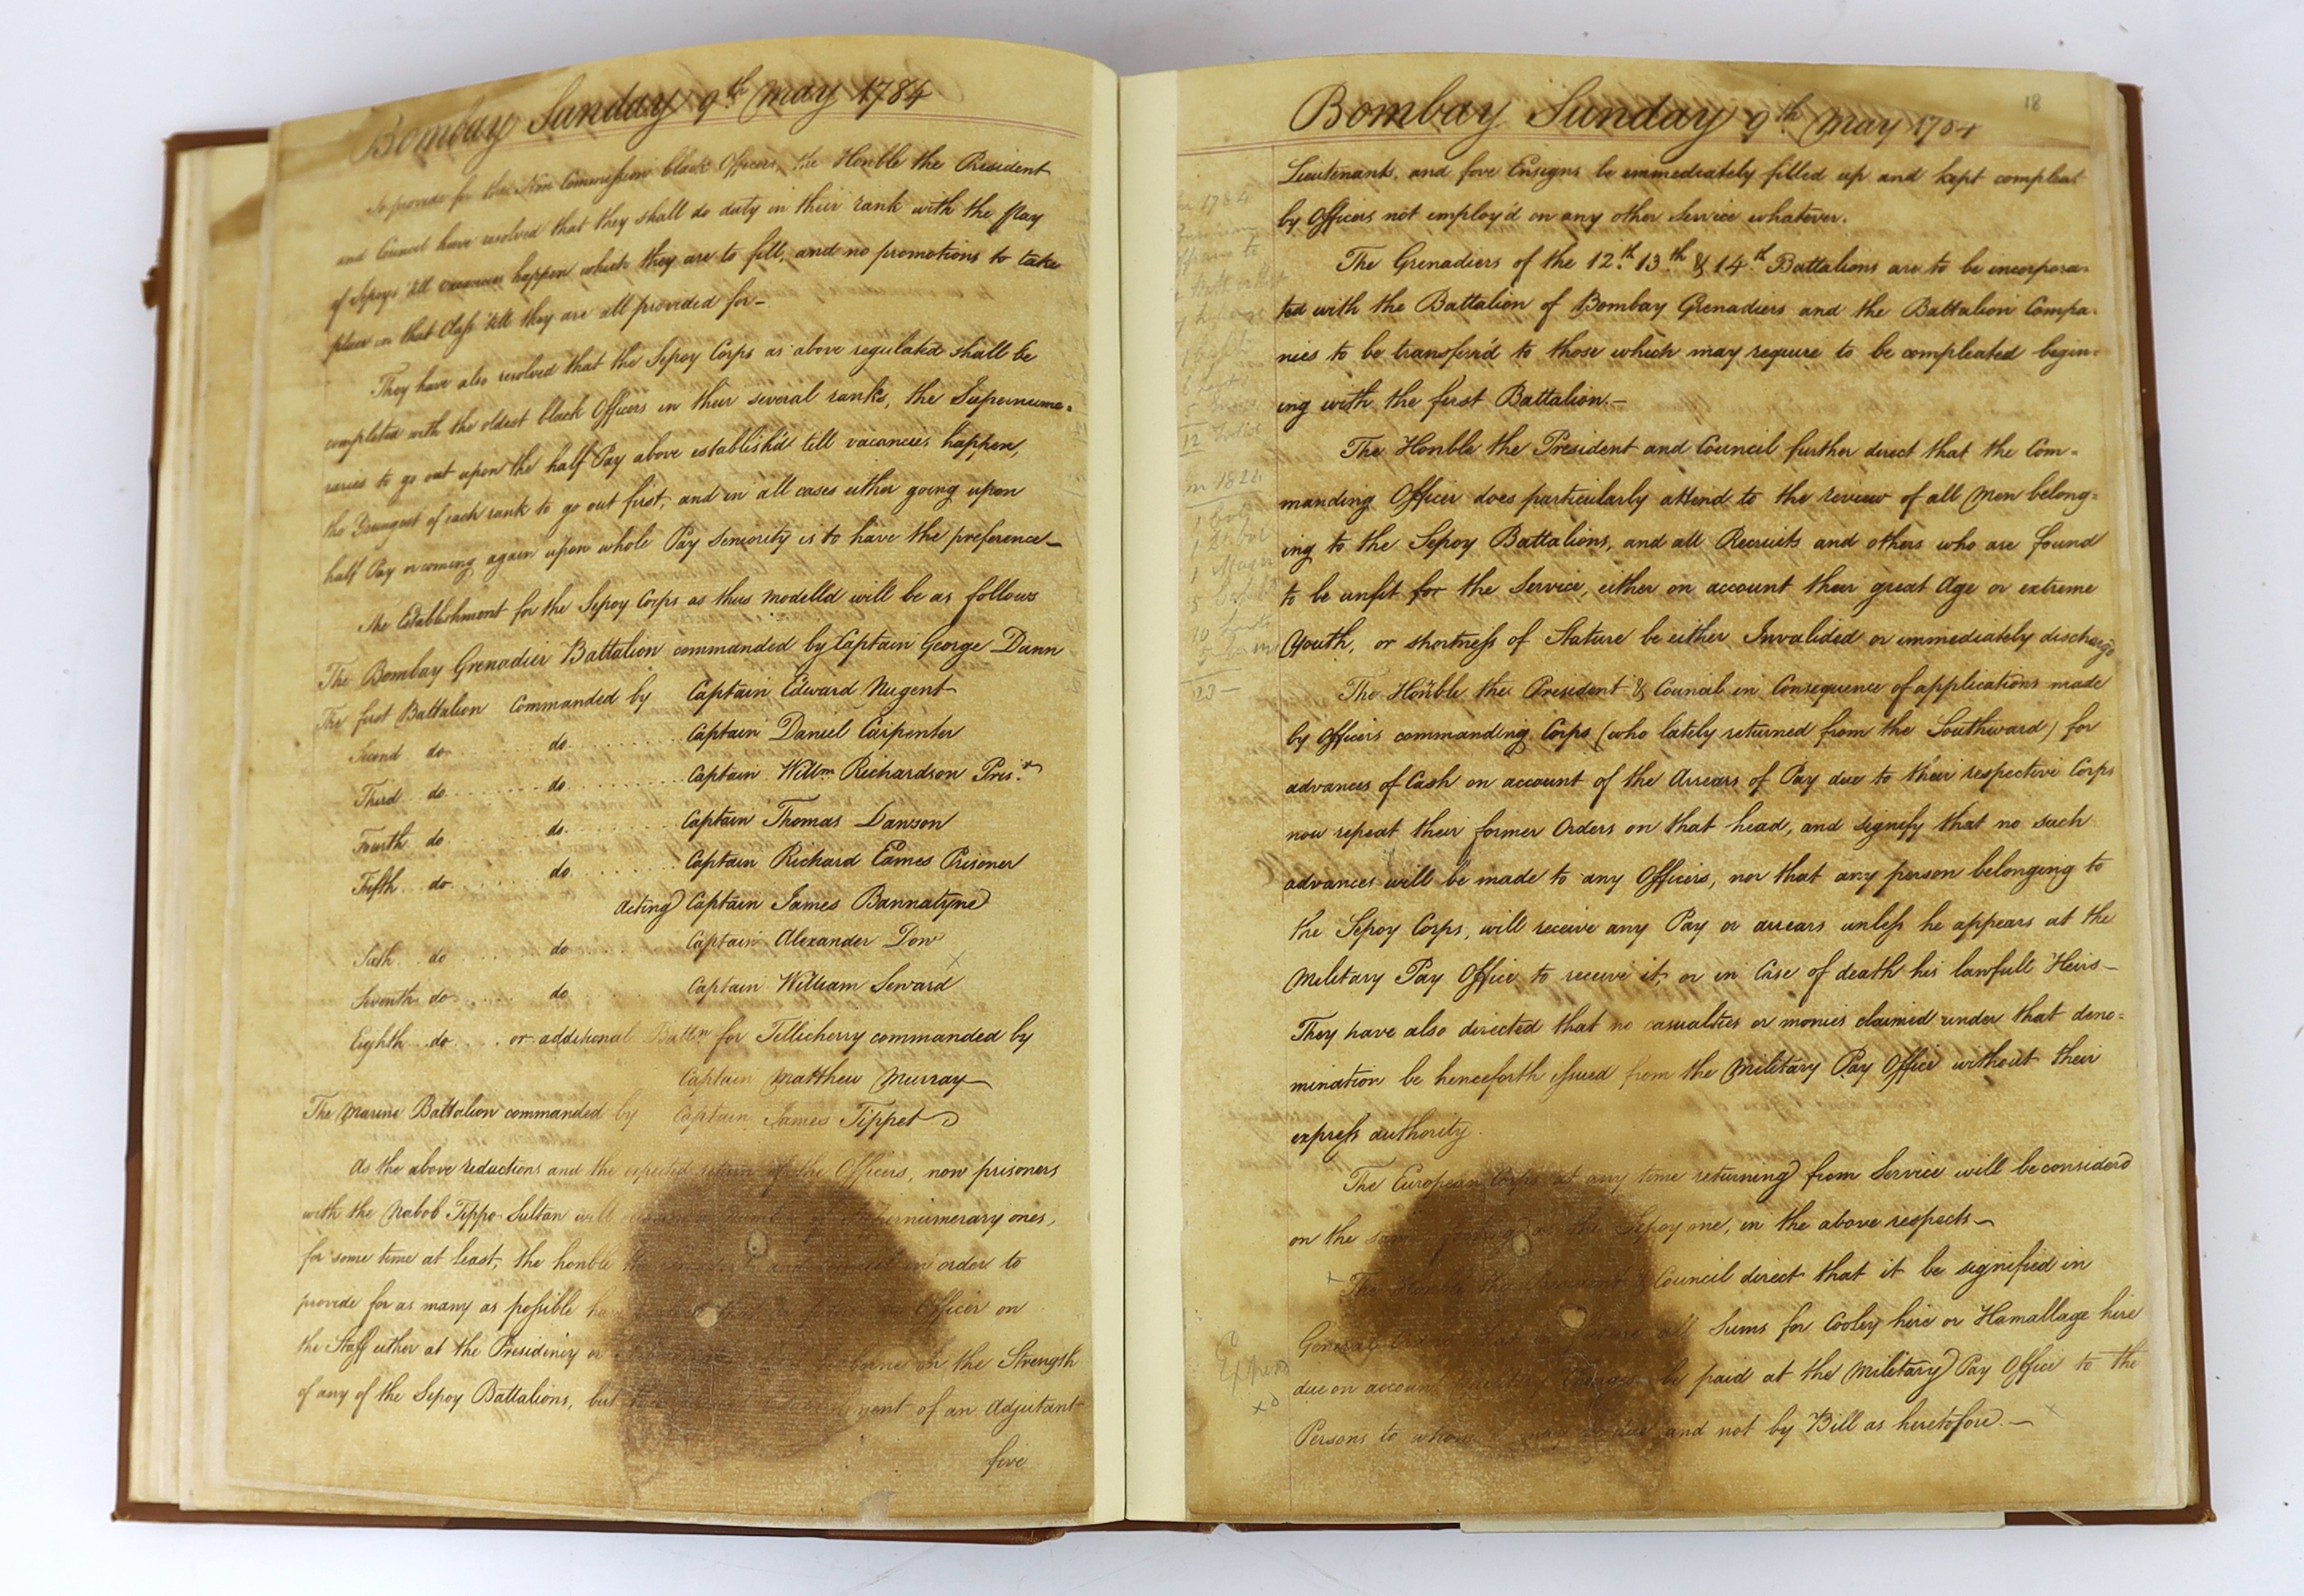 Bombay Sunday 9th May 1784
To provide for the Non Commission black Officers, the Honble the President
and Council have resolved that they shall do duty in their rank with the Pay
of Sepoys till vacancies happen which they are to fill, and no promotions to take
place in that Class till they are all provided for —
They have also resolved that the Sepoy Corps as above regulated shall be
completed with the oldest black Officers in their several ranks, the Supernume=
raries to go out upon the half Pay above establish'd till vacancies happen,
the Youngest of each rank to go out first, and in all cases either going upon
half Pay or coming again upon whole Pay Seniority is to have the preference —
The Establishment for the Sepoy Corps as thus modelld will be as follows
The Bombay Grenadier Battalion commanded by Captain George Dunn
The first Battalion Commanded by Captain Edward Nugent
Second do do Captain Daniel Carpenter
Third do do Captain Willm Richardson Prisr
Fourth do do Captain Thomas Dawson
Fifth do do Captain Richard Eames Prisoner
Acting Captain James Bannatyne
Sixth do do Captain Alexander Dow
Seventh do do Captain William Seward
Eighth do or additional Battn for Tellicherry commanded by
Captain Matthew Murray
The Marine Battalion commanded by Captain James Tippet
As the above reductions and the expected return of the Officers, now prisoners
with the Nabob Tippo Sultan will supernumerary ones,
for some time at least, the honble the President and Council in order to
provide for as many as possible have Officer on
the Staff either at the Presidency or borne on the Strength
of any of the Sepoy Battalions, but of an Adjutant
five
Bombay Sunday 9th May 1784
18
Lieutenants, and five Ensigns be immediately filled up and kept compleat
by Officers not employ'd on any other Service whatever.
The Grenadiers of the 12th 13th & 14th Battalions are to be incorpora=
ted with the Battalion of Bombay Grenadiers and the Battalion Compa=
nies to be transferr'd to those which may require to be compleated begin=
ing with the first Battalion. —
The Honble the President and Council further direct that the Com=
manding Officer does particularly attend to the review of all Men belong=
ing to the Sepoy Battalions, and all Recruits and others who are found
to be unfit for the Service, either on account their great Age or extreme
Youth, or shortness of Stature be either Invalided or immediately discharg'd
The Honble the President & Council in Consequence of applications made
by Officers commanding Corps (who lately returned from the Southward) for
advances of Cash on account of the Arrears of Pay due to their respective Corps
now repeat their former Orders on that head, and signify that no such
advances will be made to any Officers, nor that any person belonging to
the Sepoy Corps, will receive any Pay or arrears unless he appears at the
Military Pay Office to receive it, or in Case of death his lawfull Heirs —
They have also directed that no casualties or monies claimed under that deno=
mination be henceforth issued from the Military Pay Office without their
express authority.
The European Corps at any time returning from Service will be considerd
on the same footing as the Sepoy one, in the above respects —
The Honble the President & Council direct that it be signified in
General Orders all Sums for Cooley hire or Hamallage hire
due on account be paid at the Military Pay Office to the
Persons to whom it may be due and not by Bill as heretofore. —